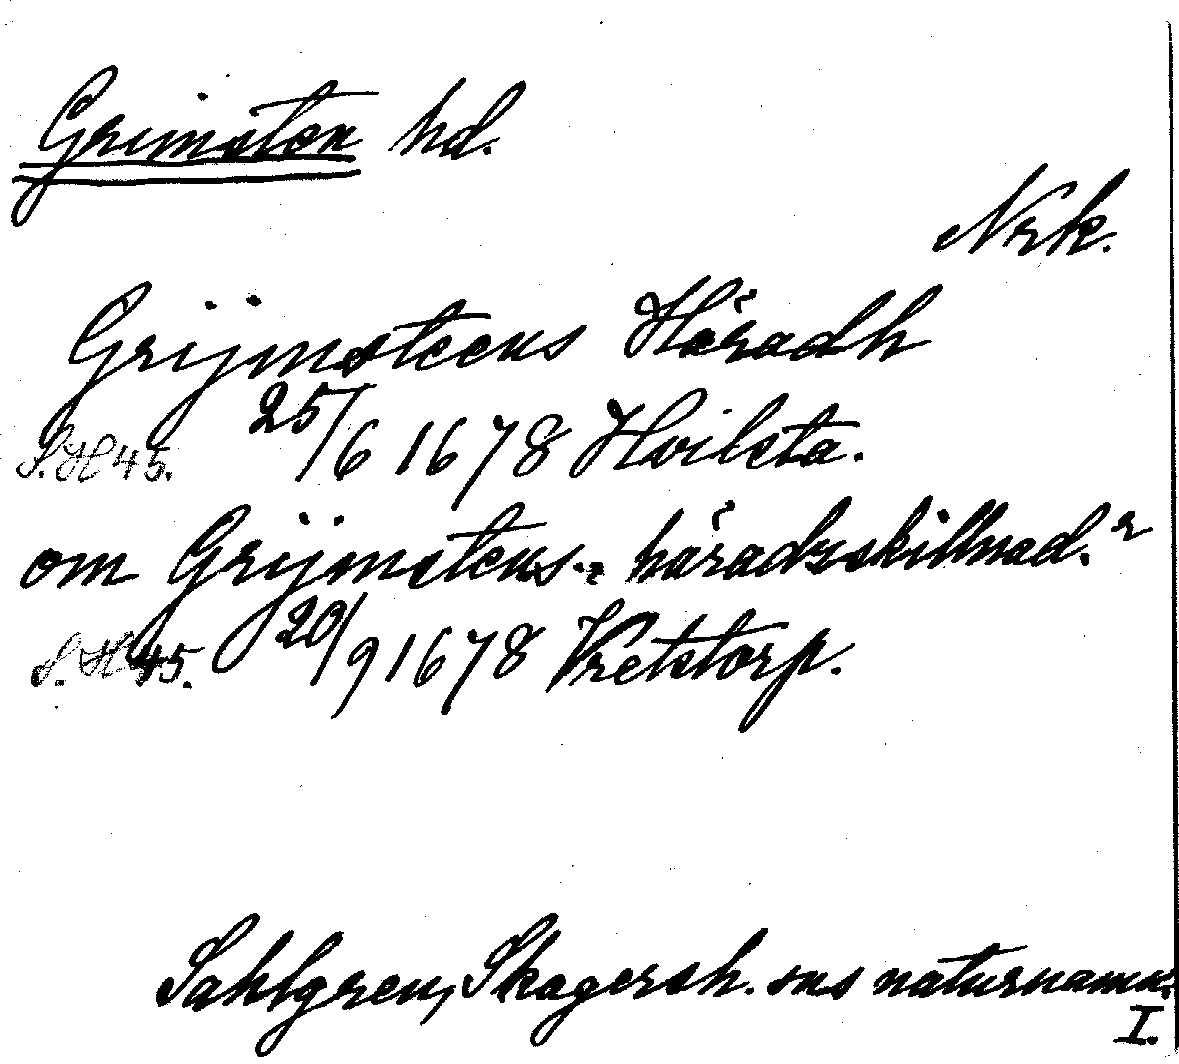 Grimsten hd.
Nrk.
Grijmsteens Häradh
S.H45. 25/6 1678 Hvilsta.
om Grijmstens häradzskillnad.r
S.H45. 20/9 1678 Vretstorp.
Sahlgren, Skagersh. sns naturnamn.
I.